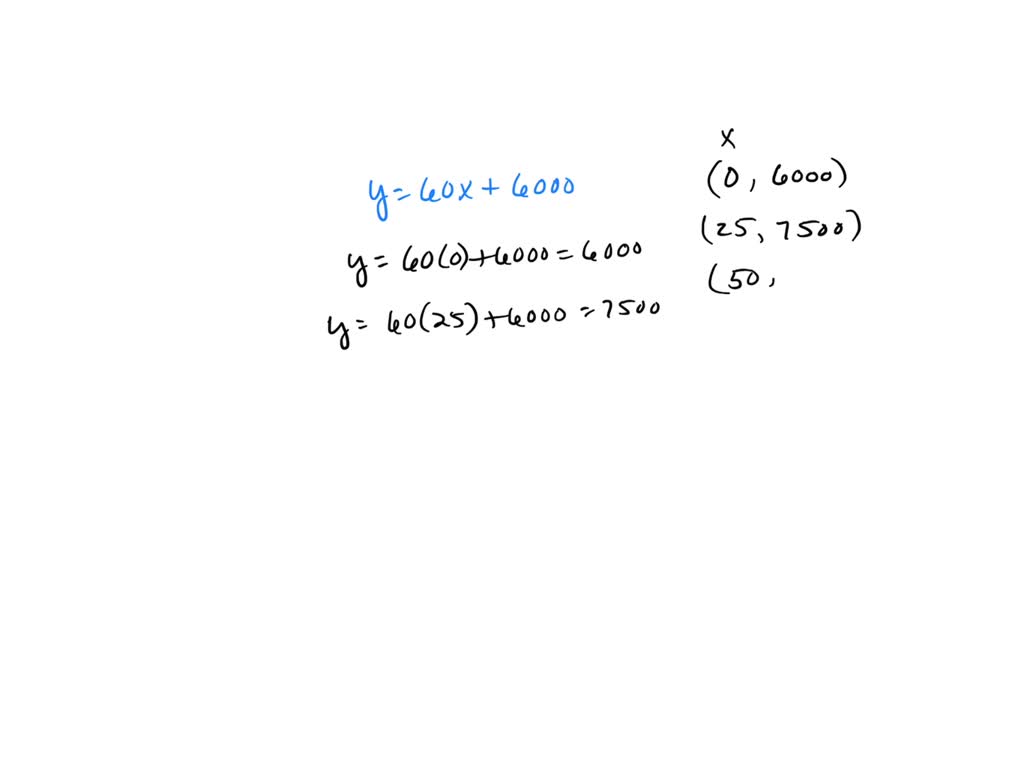 y = 60x + 6000
y = 60(0) + 6000 = 6000
y = 60(25) + 6000 = 7500
x
(0, 6000)
(25, 7500)
(50,